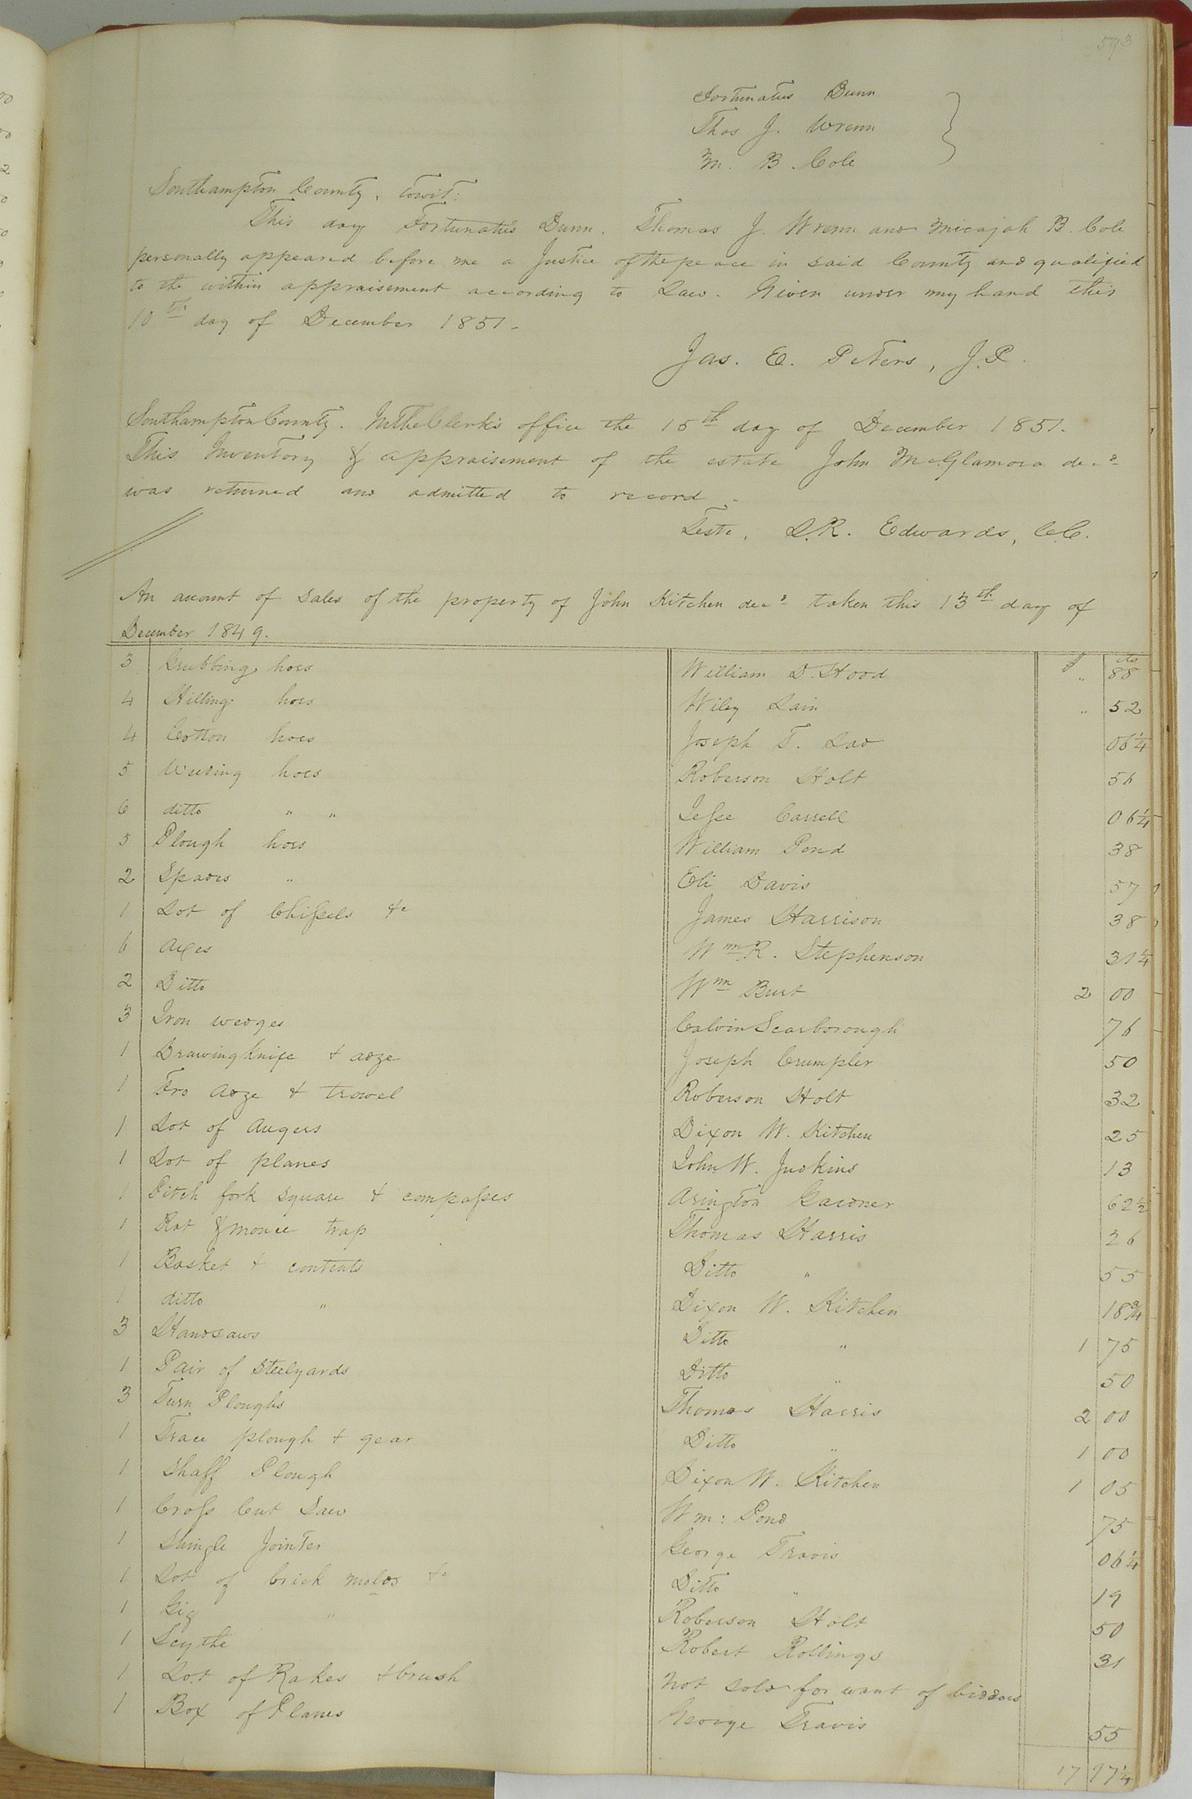 593
Fortunatus Dunn
Thos J. Wrenn
M. B. Cole
Southampton County, towit:
This day Fortunatus Dunn, Thomas J. Wrenn and Micajah B. Cole
personally appeared before me a Justice of the peace in said County and qualified
to the within appraisement according to Law. Given under my hand this
10th day of December 1851.
Jas. E. Peters, J.P.
Southampton County. In the Clerk's office the 15th day of December 1851.
This Inventory & appraisement of the estate John McGlamora decd
was returned and admitted to record.
Teste, L.R. Edwards, C.C.
An account of sales of the property of John Kitchen decd taken this 13th day of
December 1849.
$ cts
3 Grubbing hoes William D. Hood " 88
4 Hilling hoes Wiley Lain " 52
4 Cotton hoes Joseph T. 06¼
5 Weeding hoes Roberson Holt 56
6 ditto " " Jesse Carrell 06¼
5 Plough hoes William Pond 38
2 Spades " Eli Davis 57
1 Lot of Chissels &c James Harrison 38
6 Axes Wm R. Stephenson 31¼
2 Ditto Wm Burt 2 00
3 Iron wedges Calvin Scarborough 76
1 Drawing knife & adze Joseph Crumpler 50
1 Fro adze & trowel Roberson Holt 32
1 Lot of Augers Dixon W. Kitchen 25
1 Lot of planes John W. Judkins 13
1 Pitch fork square & compasses Arington Gardner 62½
1 Rat & mouce trap Thomas Harris 26
1 Basket & contents Ditto " 55
1 ditto " Dixon W. Kitchen 18¾
3 Handsaws Ditto " 1 75
1 Pair of Steelyards Ditto " 50
3 Turn Ploughs Thomas Harris 2 00
1 Trace plough & gear Ditto " 1 00
1 Shaff Plough Dixon W. Kitchen 1 05
1 Cross Cut Saw Wm: Pond 75
1 Shingle Jointer George Travis 06¼
1 Lot of brick molds &c Ditto " 19
1 Gig " Roberson Holt 50
1 Scythe Robert Rollings 31
1 Lot of Rakes & brush Not sold for want of bidders
1 Box of Planes George Travis 55
17 97¼